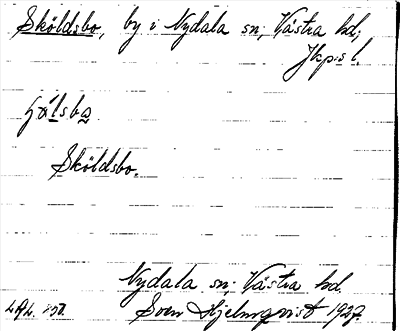 Sköldsbo, by i Nydala sn, Västra hd,
Jkp:s l.
Sköldsbo.
Nydala sn, Västra hd.
Sven Hjelmqvist 1927.